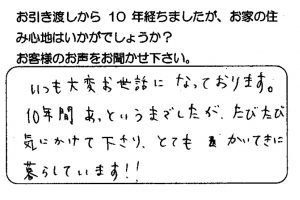 お引き渡しから 10 年経ちましたが、お家の住
み心地はいかがでしょうか？
お客様のお声をお聞かせ下さい。
いつも大変お世話になっております。
10年間あっというまでしたが、たびたび
気にかけて下さり、とても かいてきに
暮らしています!!